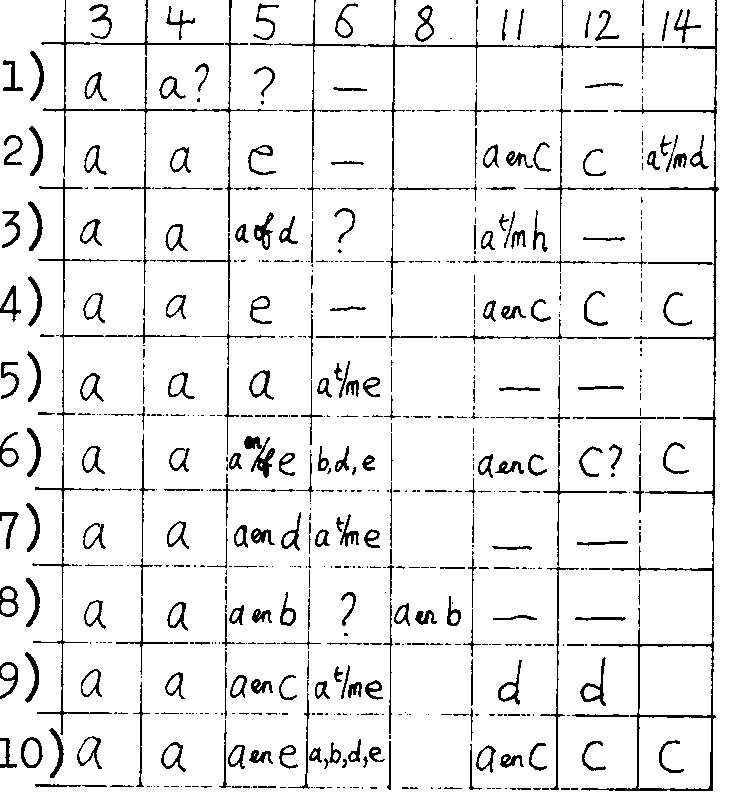 3 4 5 6 8 11 12 14
1) a a? ? — —
2) a a e — a en c c a t/m d
3) a a a of d ? a t/m h —
4) a a e — a en c c c
5) a a a a t/m e — —
6) a a a en/of e b,d,e a en c c? c
7) a a a en d a t/m e — —
8) a a a en b ? a en b — —
9) a a a en c a t/m e d d
10) a a a en e a,b,d,e a en c c c